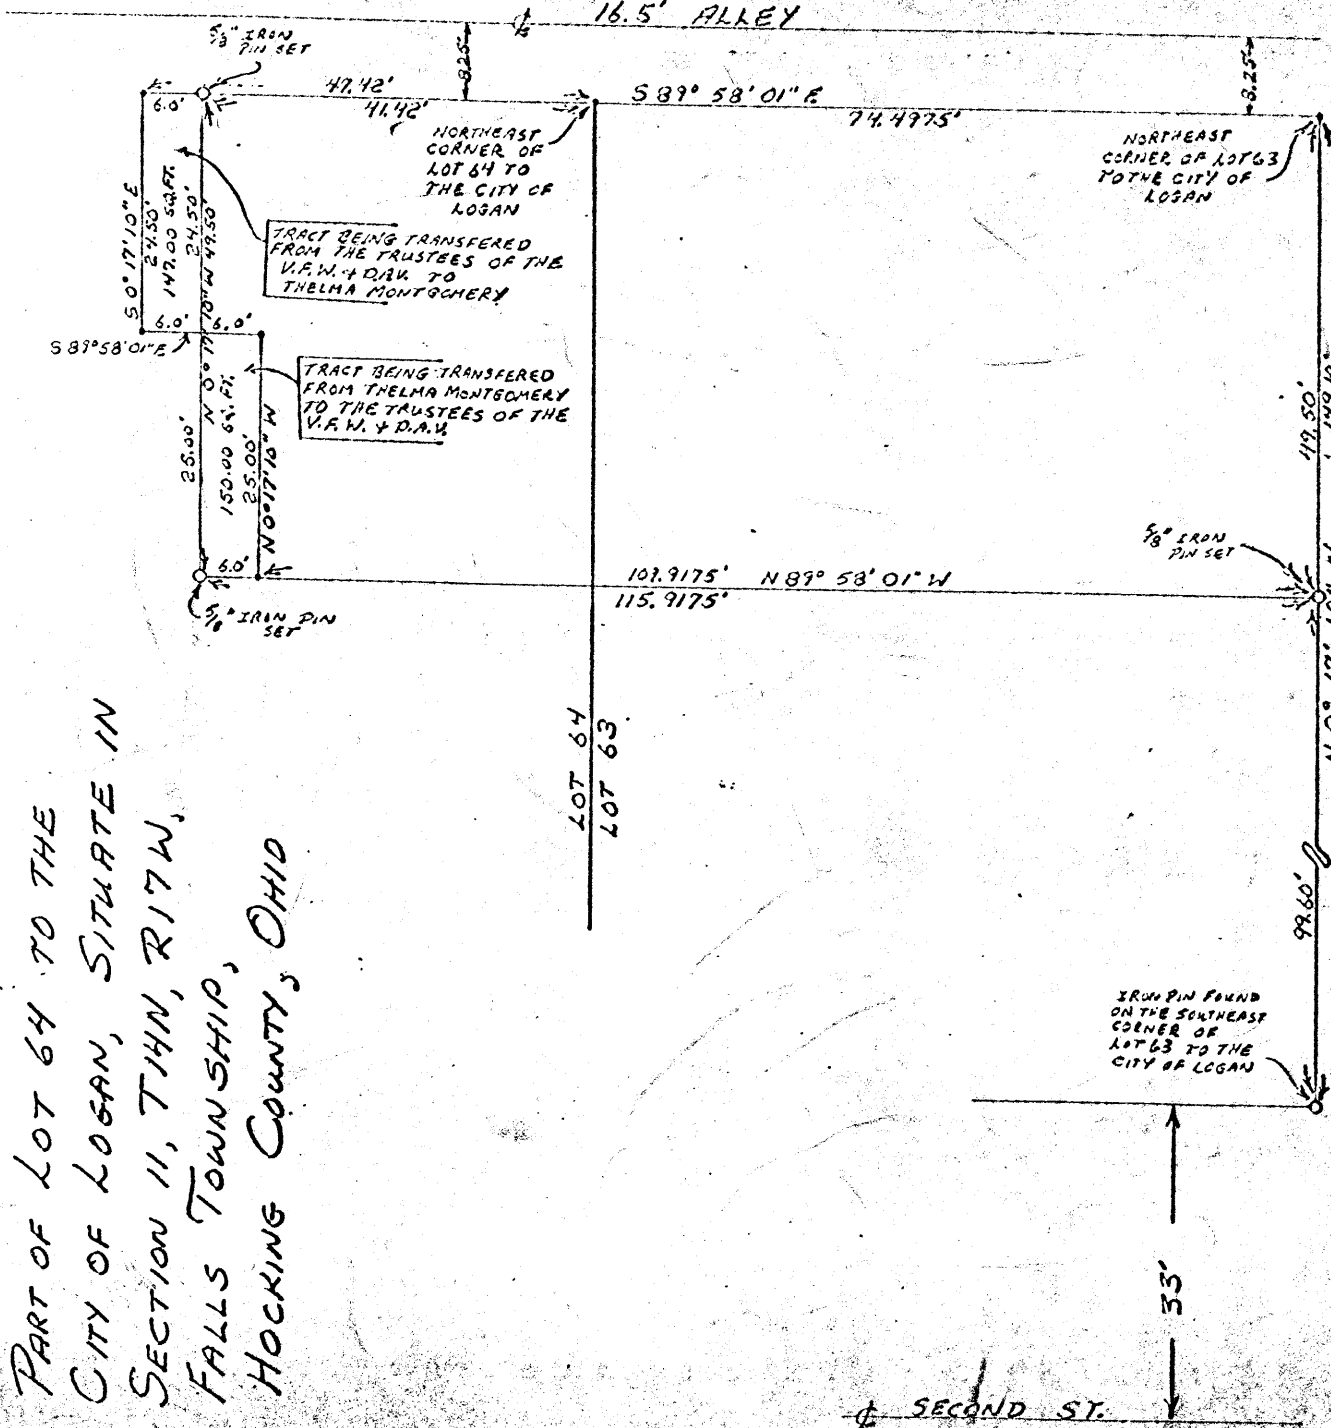 16.5' ALLEY
5/8" IRON
PIN SET
8.25'
8.25'
6.0'
47.42'
41.42'
S 89° 58' 01" E
74.4975'
NORTHEAST
CORNER OF
LOT 64 TO
THE CITY OF
LOGAN
NORTHEAST
CORNER OF LOT 63
TO THE CITY OF
LOGAN
S 0° 17' 10" E
24.50'
147.00 SQ.FT.
24.50'
N 0° 17' 10" W 49.50'
TRACT BEING TRANSFERED
FROM THE TRUSTEES OF THE
V.F.W. & D.A.V. TO
THELMA MONTGOMERY
6.0'
6.0'
S 89° 58' 01" E
TRACT BEING TRANSFERED
FROM THELMA MONTGOMERY
TO THE TRUSTEES OF THE
V.F.W. & D.A.V.
25.00'
150.00 SQ. FT.
25.00'
N 0° 17' 10" W
49.50'
5/8" IRON
PIN SET
6.0'
109.9175' N 89° 58' 01" W
115.9175'
5/8" IRON PIN
SET
LOT 64
LOT 63
99.60'
IRON PIN FOUND
ON THE SOUTHEAST
CORNER OF
LOT 63 TO THE
CITY OF LOGAN
33'
SECOND ST.
PART OF LOT 64 TO THE
CITY OF LOGAN, SITUATE IN
SECTION 11, T14N, R17W,
FALLS TOWNSHIP,
HOCKING COUNTY, OHIO